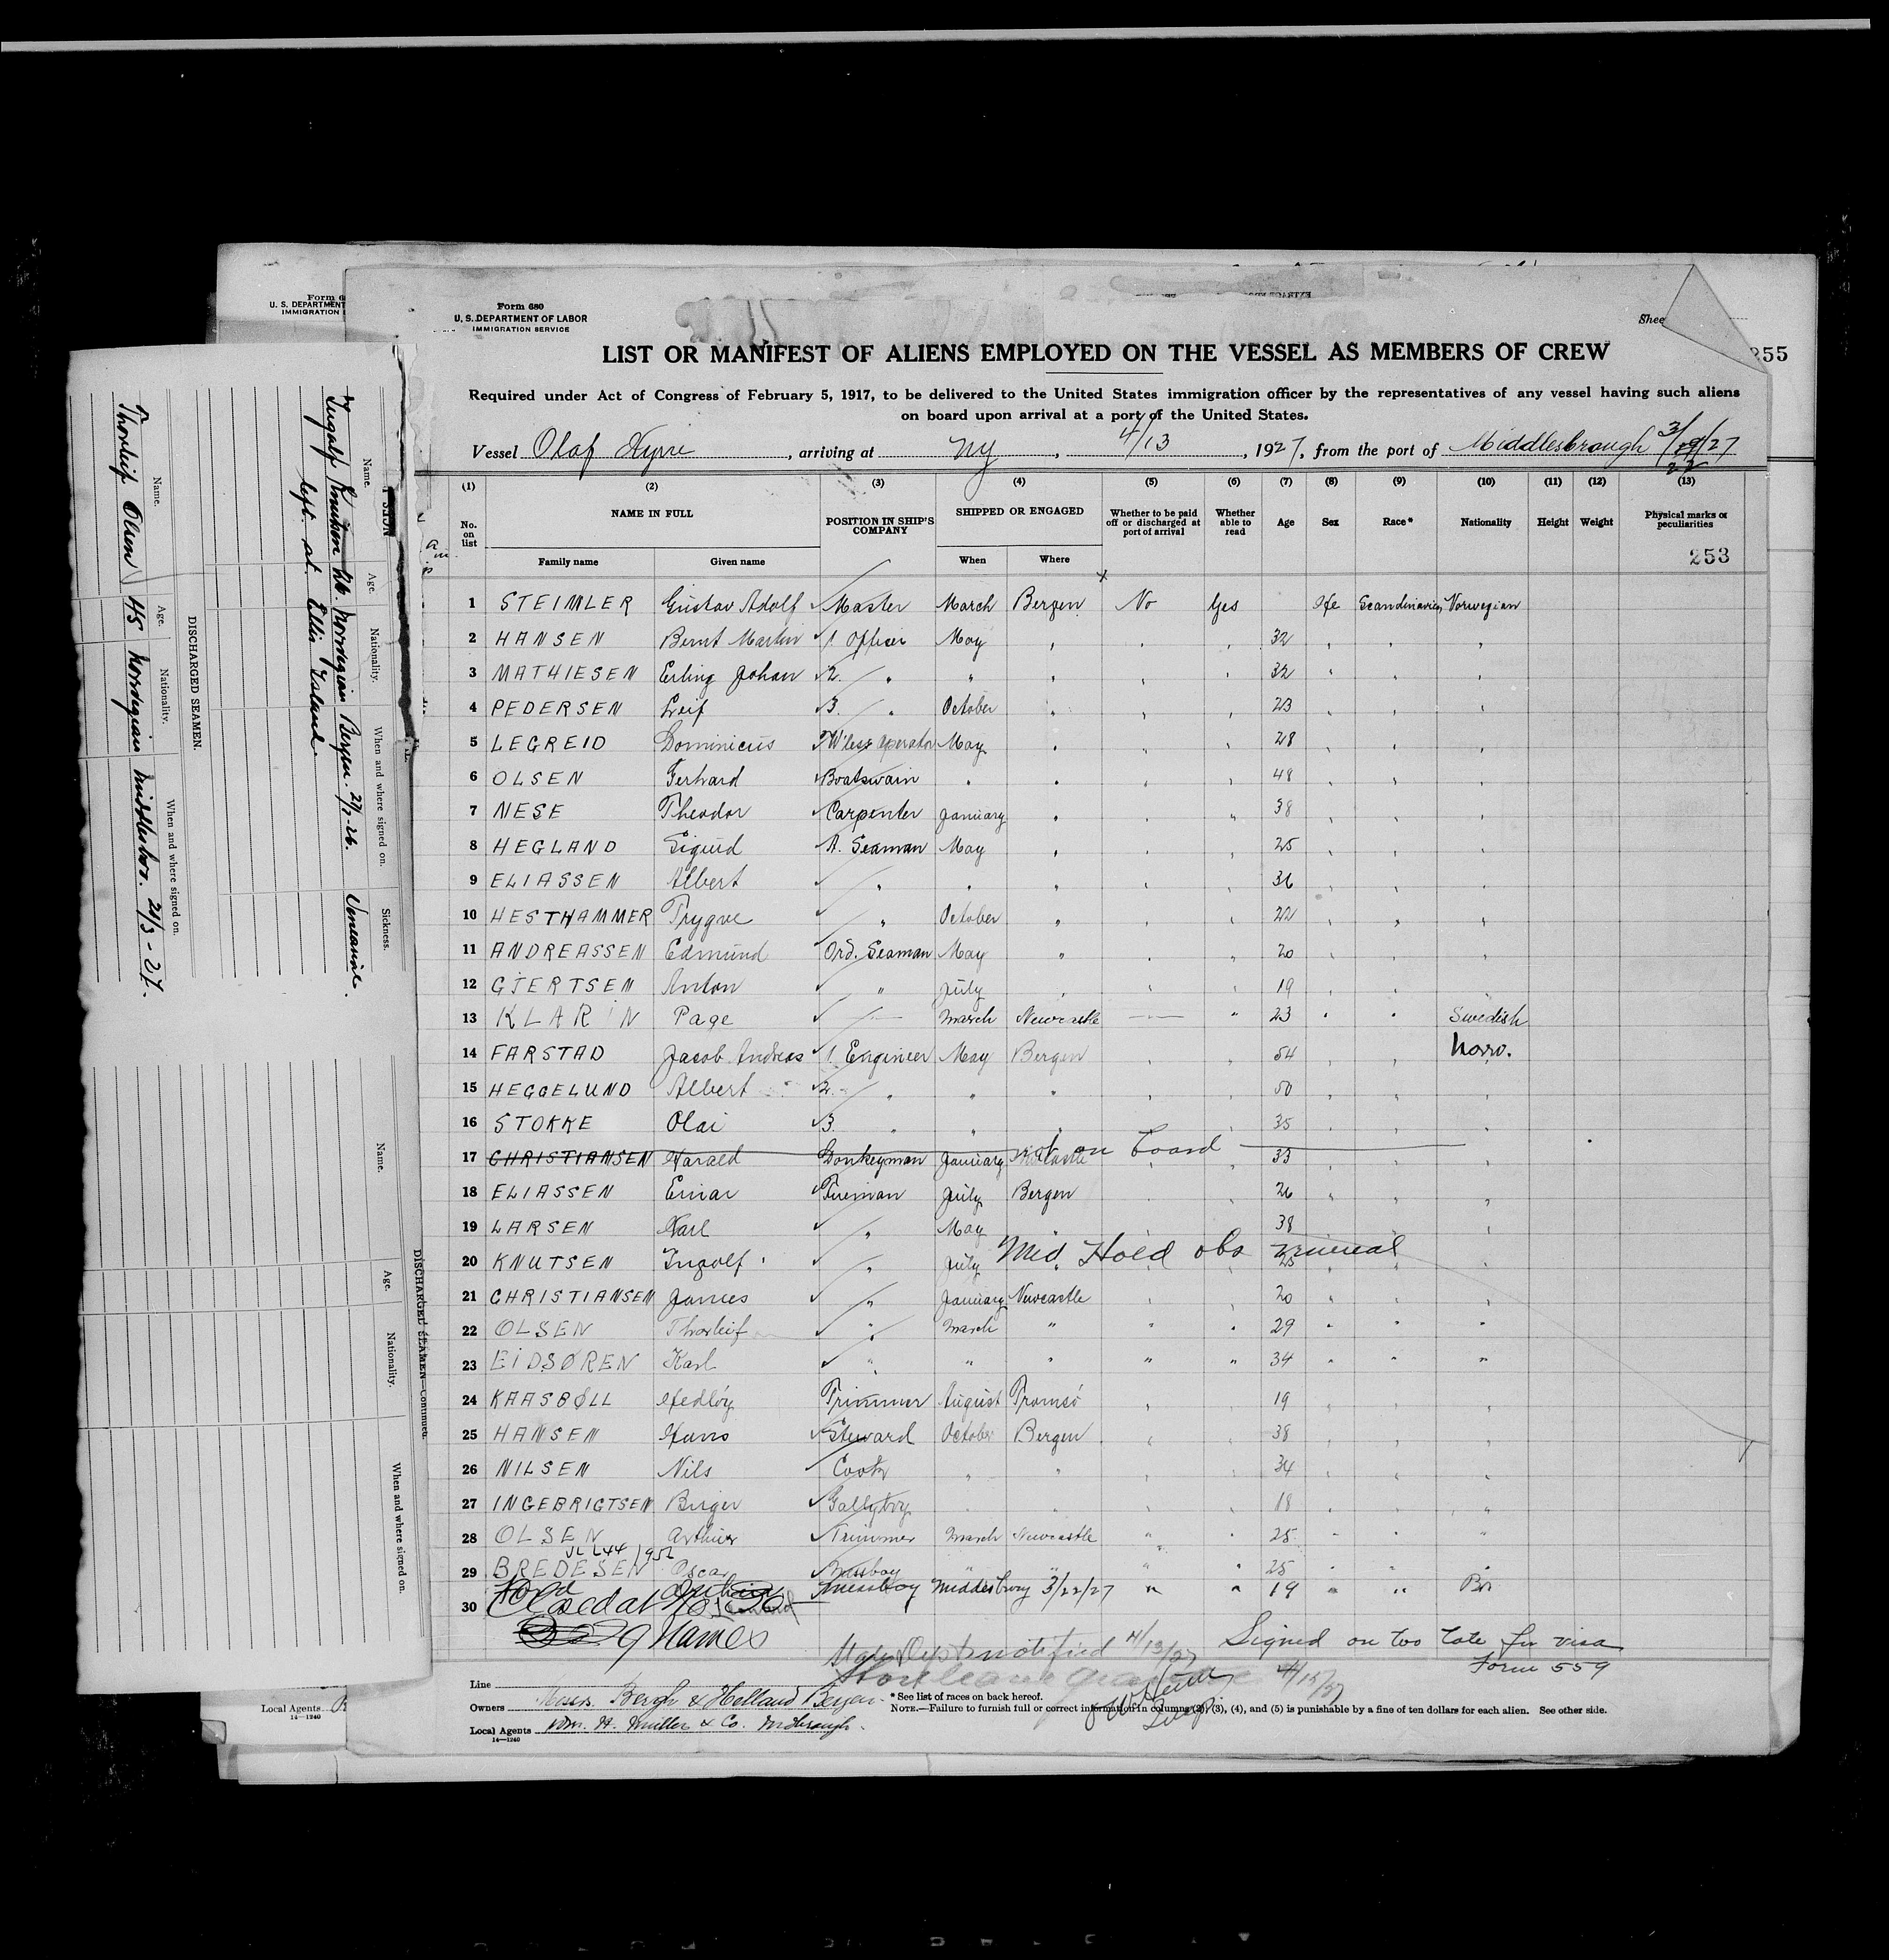 Form 680
U. S. DEPARTMENT OF LABOR
IMMIGRATION SERVICE
LIST OR MANIFEST OF ALIENS EMPLOYED ON THE VESSEL AS MEMBERS OF CREW
255
Required under Act of Congress of February 5, 1917, to be delivered to the United States immigration officer by the representatives of any vessel having such aliens
on board upon arrival at a port of the United States.
Vessel Olaf Kyrre, arriving at NY, 4/13, 1927, from the port of Middlesbrough 3/22/27
(1) (2) (3) (4) (5) (6) (7) (8) (9) (10) (11) (12) (13)
No. on list NAME IN FULL Family name Given name POSITION IN SHIP'S COMPANY SHIPPED OR ENGAGED When Where Whether to be paid off or discharged at port of arrival Whether able to read Age Sex Race* Nationality Height Weight Physical marks or peculiarities
253
1 STEIMLER Gustav Adolf Master March Bergen No Yes Scandinavien Norwegian
2 HANSEN Bernt Martin 1. Officer May " " " 32 " " "
3 MATHIESEN Erling Johan 2. " " " " " 32 " " "
4 PEDERSEN Leif 3. " October " " " 23 " " "
5 LEGREID Dominicus W'less operator May " " " 28 " " "
6 OLSEN Gerhard Boatswain " " " " 48 " " "
7 NESE Theodor Carpenter January " " " 38 " " "
8 HEGLAND Sigurd A. Seaman May " " " 25 " " "
9 ELIASSEN Albert " " " " " 36 " " "
10 HESTHAMMER Trygve " October " " " 22 " " "
11 ANDREASSEN Edmund Ord. Seaman May " " " 20 " " "
12 GJERTSEN Anton " July " " " 19 " " "
13 KLARIN Page — March Newcastle — " 23 " " Swedish
14 FARSTAD Jacob Andreas 1. Engineer May Bergen " " 54 " " Norw.
15 HEGGELUND Albert 2. " " " " " 50 " " "
16 STOKKE Olai 3. " " " " " 35 " " "
17 CHRISTIANSEN Harald Donkeyman January Newcastle not on board 33 "
18 ELIASSEN Einar Fireman July Bergen " " 26 " " "
19 LARSEN Karl " May " " " 38 " " "
20 KNUTSEN Ingolf " July " Med. Hold obs venereal 25 " " "
21 CHRISTIANSEN James " January Newcastle " " 20 " " "
22 OLSEN Thorleif " March " " " 29 " " "
23 EIDSØREN Karl " " " " " 34 " " "
24 KAASBØLL Hedley Trimmer August Tromsø " " 19 " " "
25 HANSEN Hans Steward October Bergen " " 38 " " "
26 NILSEN Nils Cook " " " " 34 " " "
27 INGEBRIGTSEN Birger Galleyboy " " " " 18 " " "
28 OLSEN Arthur Trimmer March Newcastle " " 25 " " "
29 BREDESEN Oscar Messboy " " " " 25 " " "
Ford messboy Middlesbro 3/22/27 " " 19 " " Br
30 Closed at
29 Names
notified 4/13/27
Signed on too late for visa
Form 559
4/13/27
Line
Owners Messrs. Bergh & Helland Bergen.
Local Agents Wm. H. Müller & Co. Mdbrough.
14—1240
* See list of races on back hereof.
NOTE.—Failure to furnish full or correct information in columns (2), (3), (4), and (5) is punishable by a fine of ten dollars for each alien. See other side.
Name. Age. Nationality. When and where signed on. Sickness.
Ingolf Knutsen 26. Norwegian Bergen. 27/7-26. Venerical.
left at Ellis Island.
DISCHARGED SEAMEN.
Name. Age. Nationality. When and where signed on.
Thorleif Olsen 45 Norwegian Middlesbro. 21/3-27.
DISCHARGED SEAMEN—Continued.
Name. Age. Nationality. When and where signed on.
U. S. DEPARTMENT
IMMIGRATION
Local Agents
14—1240